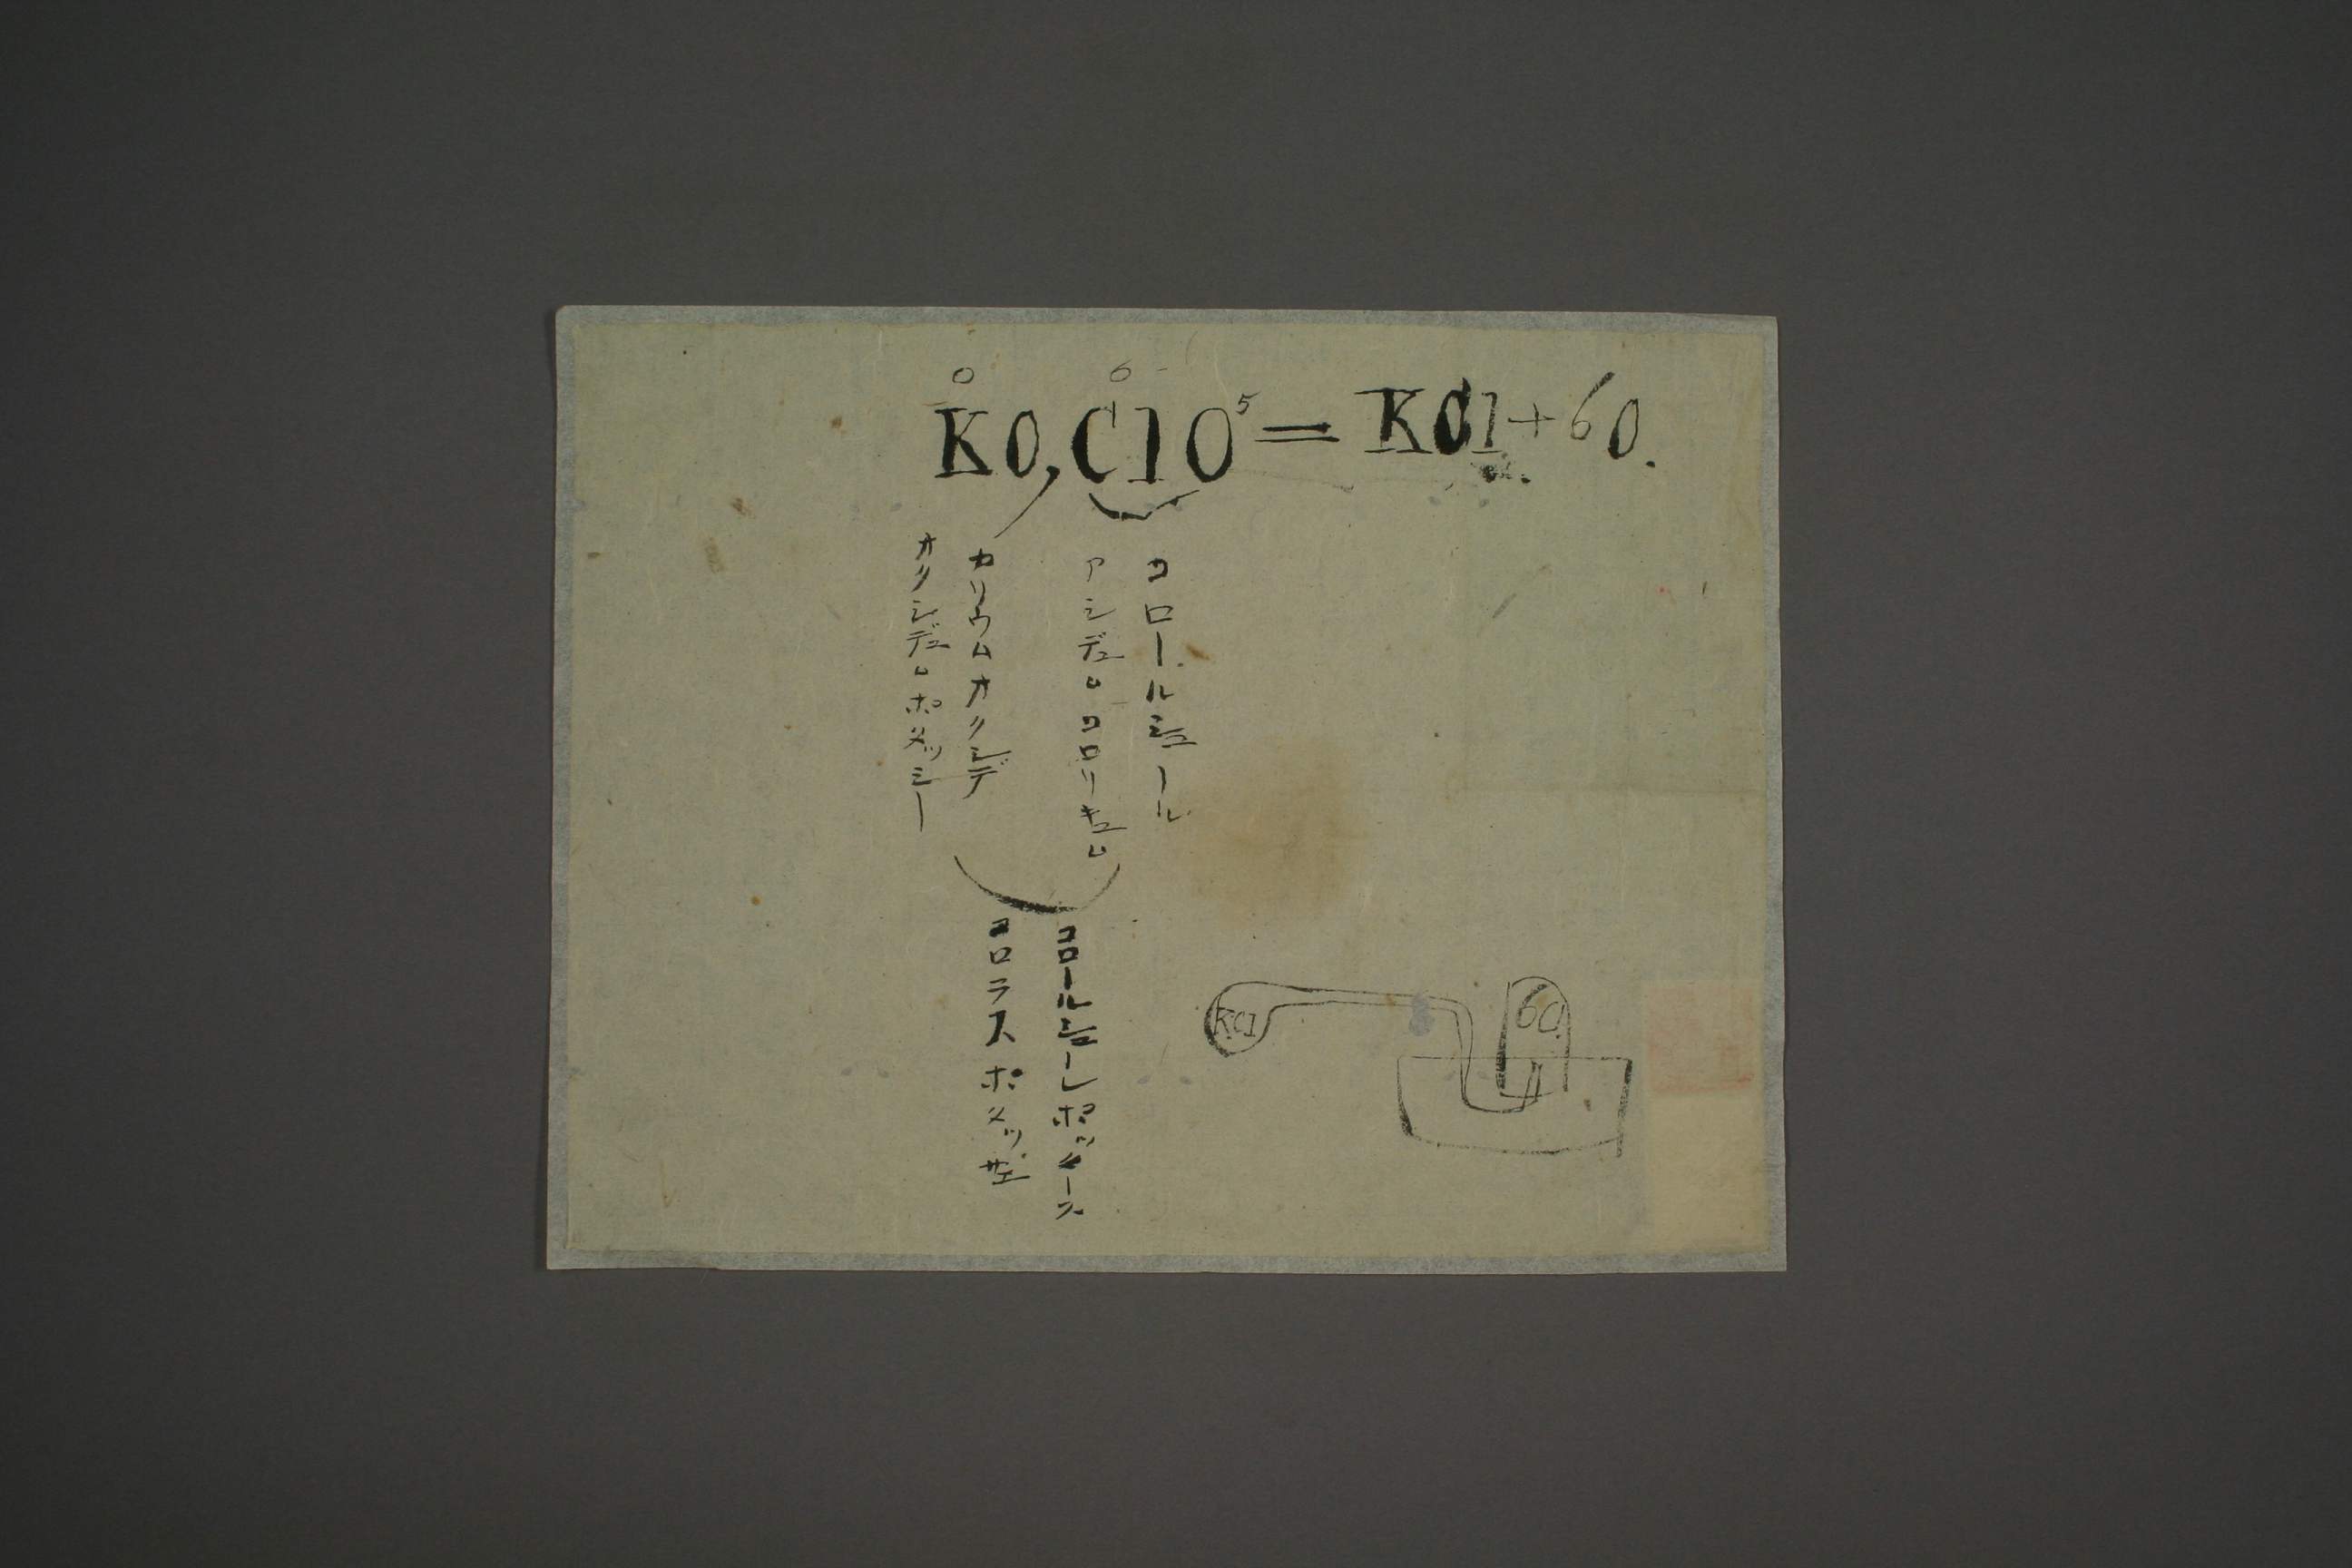 KO,ClO⁵=KCl+6O.
コロールシュール
アシデュムコロリキュム
カリウムオクシデ
オクシデュムポタッシー
コロールシューレポッタース
コロラスポタッサエ
KCl
6O